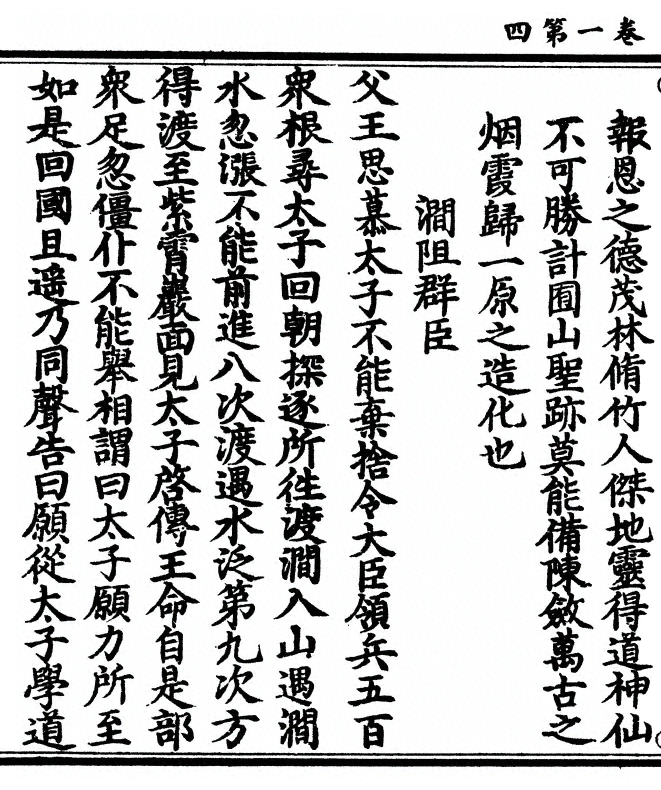 卷一第四
報恩之德茂林脩竹人傑地靈得道神仙
不可勝計囿山聖跡莫能備陳斂萬古之
烟霞歸一原之造化也
澗阻群臣
父王思慕太子不能棄捨令大臣領兵五百
衆根尋太子回朝探逐所徃渡澗入山遇澗
水忽漲不能前進八次渡遇水泛第九次方
得渡至紫霄巖面見太子啓傳王命自是部
衆足忽僵仆不能舉相謂曰太子願力所至
如是回國且遥乃同聲告曰願從太子學道